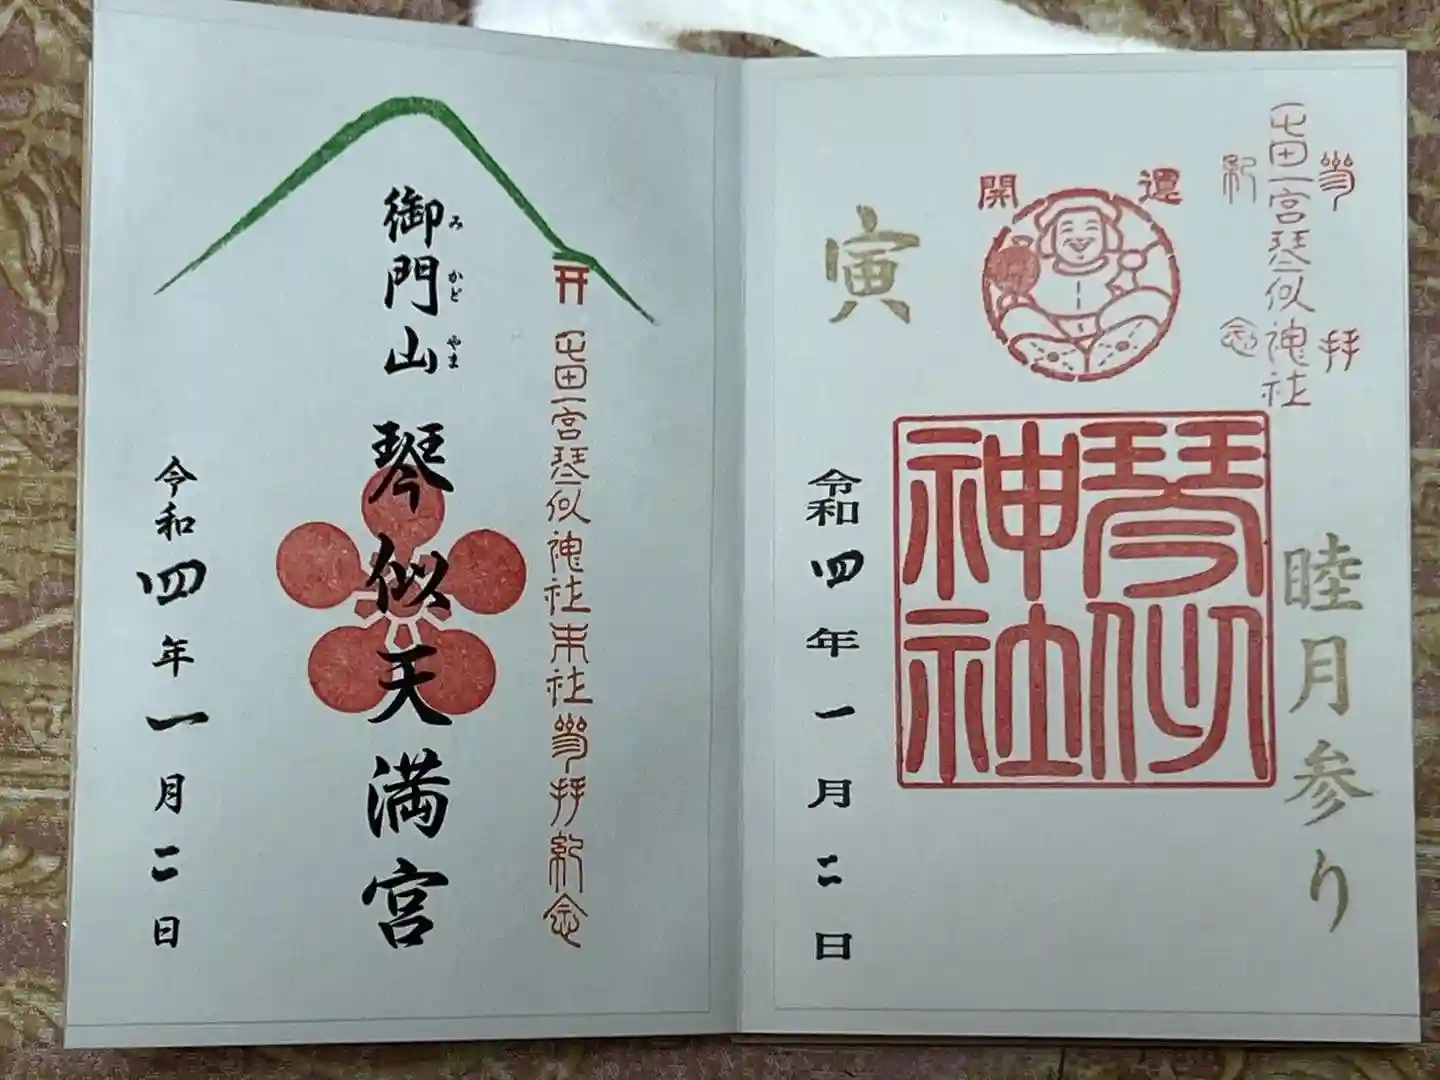 参拝
屯田一宮琴似神社
紀念
睦月参り
開運
琴似神社
寅
令和四年一月二日
屯田一宮琴似神社末社参拝紀念
みかどやま
御門山
琴似天満宮
令和四年一月二日